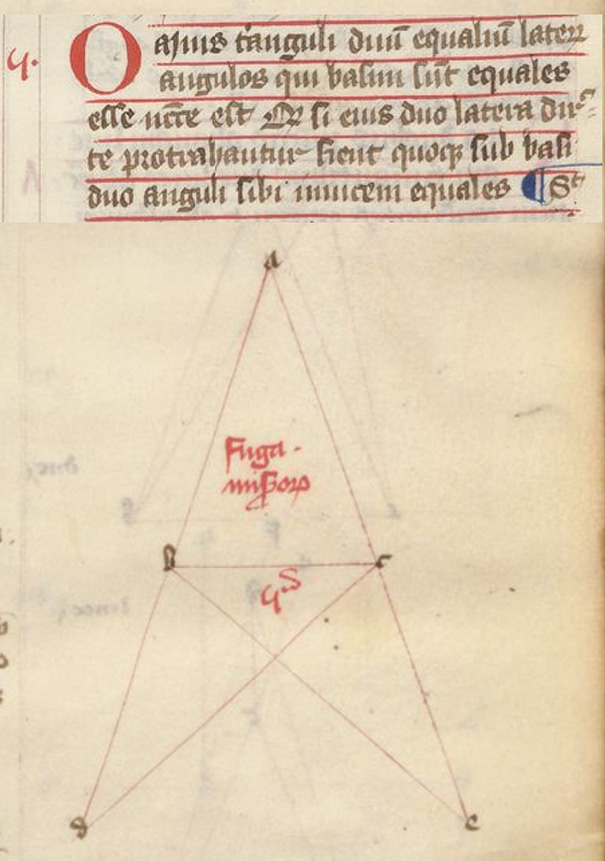 5. Om̄nis t̃anguli duũ equaliũ lateꝝ
angulos qui basim sũt equales
esse nc̄ce est Qꝫ si eius duo latera dir̃c
te protrahantur fient quoqꝫ sub basi
duo anguli sibi inuicem equales ¶ St
a
Fuga ·
miẜoꝝ
b c
5
d e